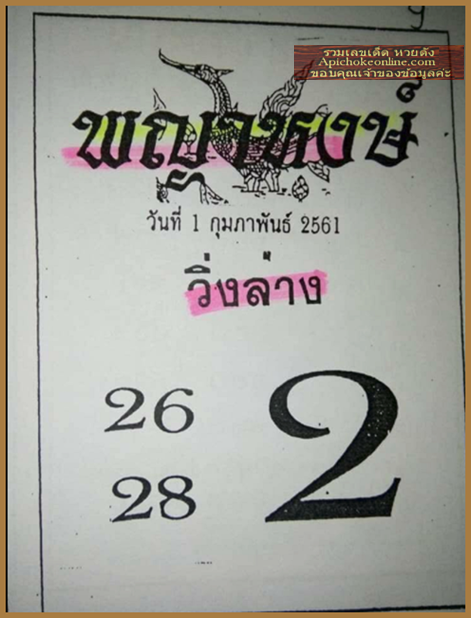 รวมเลขเด็ด หวยดัง
Apichokeonline.com
ขอบคุณเจ้าของข้อมูลค่ะ
พญาหงษ์
วันที่ 1 กุมภาพันธ์ 2561
วิ่งล่าง
26
28
2